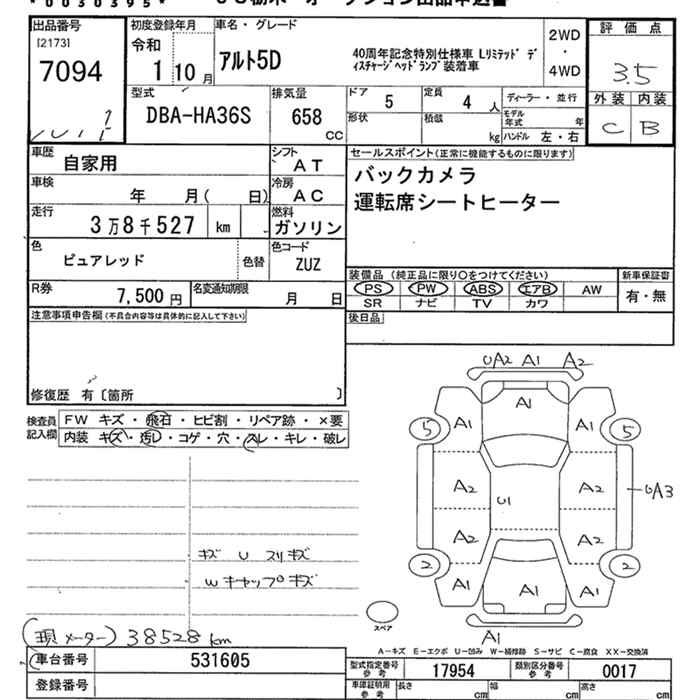 *0030395*
出品番号
[2173]
7094
初度登録年月
令和
1 10 月
車名・グレード
アルト5D
40周年記念特別仕様車 Lリミテッド ディスチャージヘッドランプ装着車
2WD
・
4WD
評価点
3.5
外装 内装
C B
型式
DBA-HA36S
排気量
658
CC
ドア 5
定員 4 人
形状
積載 kg
ディーラー・並行
モデル年式 年
ハンドル 左・右
車歴
自家用
シフト
AT
車検
年 月( 日)
冷房
AC
走行
3万8千527 km
燃料
ガソリン
色
ピュアレッド
色替
色コード
ZUZ
R券
7,500 円
名変通知期限
月 日
セールスポイント(正常に機能するものに限ります)
バックカメラ
運転席シートヒーター
装備品 (純正品に限り○をつけてください)
PS PW ABS エアB AW
SR ナビ TV カワ
新車保証書
有・無
後日品
注意事項申告欄(不具合内容等は具体的に記入して下さい)
修復歴 有〔箇所 〕
検査員記入欄
FW キズ・飛石・ヒビ割・リペア跡・×要
内装 キズ・汚レ・コゲ・穴・スレ・キレ・破レ
キズ U スリキズ
W キャップキズ
(現メーター) 38528 km
UA2 A1 A2
A1
5 A1 A1 5
A2 U1 A2 UA3
A2 A2
2 A1 A1 A1 2
A1
スペア
A-キズ E-エクボ U-凹み W-補修跡 S-サビ C-腐食 XX-交換済
車台番号
531605
登録番号
型式指定番号
参考
17954
類別区分番号
参考
0017
車庫証明用
参考
長さ cm
幅 cm
高さ cm